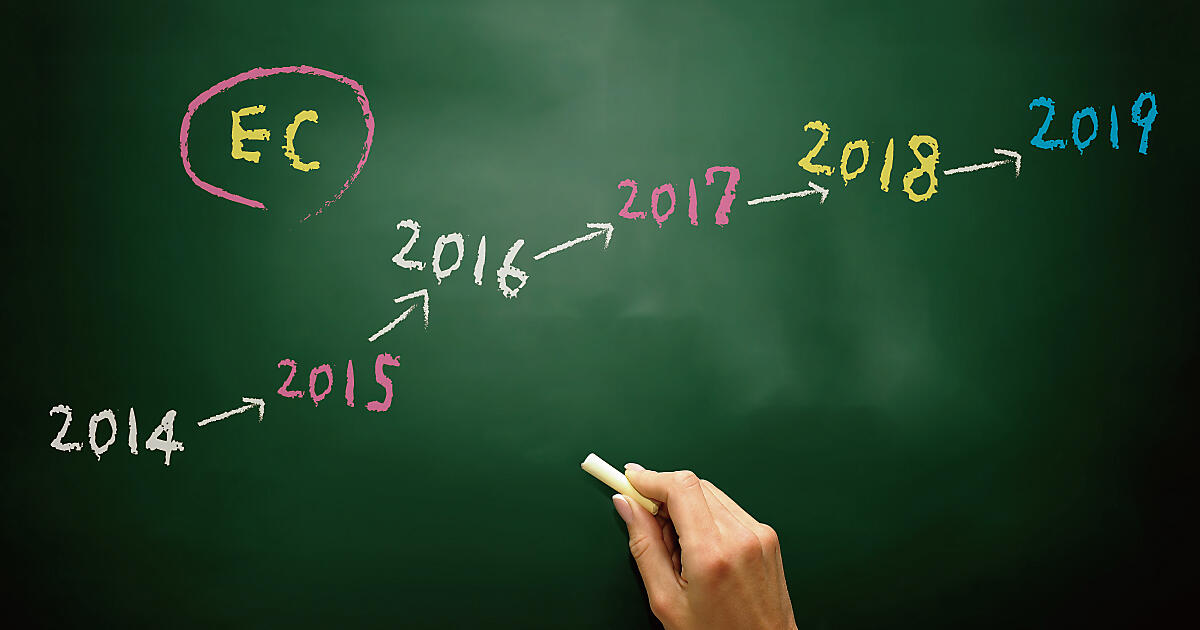 EC
2014
2015
2016
2017
2018
2019